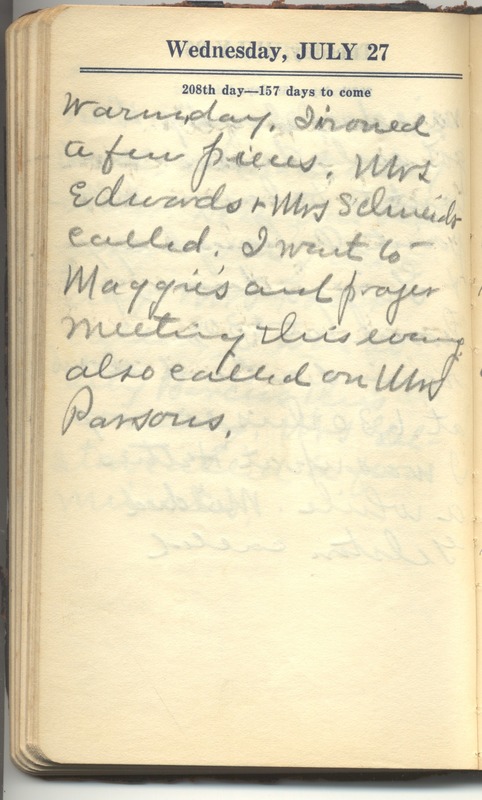 Wednesday, JULY 27
208th day—157 days to come
Warm day. I ironed
a few pieces. Mrs
Edwards + Mrs Schmidt
called. I went to
Maggie's and prayer
meeting this evening
also called on Mrs
Parsons.